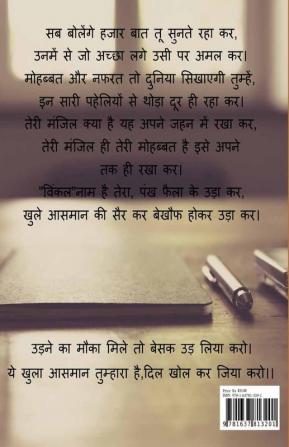 सब बोलेंगे हजार बात तू सुनते रहा कर,
उनमें से जो अच्छा लगे उसी पर अमल कर।
मोहब्बत और नफरत तो दुनिया सिखाएगी तुम्हें,
इन सारी पहेलियों से थोड़ा दूर ही रहा कर।
तेरी मंजिल क्या है यह अपने जहन में रखा कर,
तेरी मंजिल ही तेरी मोहब्बत है इसे अपने
तक ही रखा कर।
"विंकल"नाम है तेरा, पंख फैला के उड़ा कर,
खुले आसमान की सैर कर बेखौफ होकर उड़ा कर।
उड़ने का मौका मिले तो बेसक उड़ लिया करो।
ये खुला आसमान तुम्हारा है,दिल खोल कर जिया करो।।
9781637813201